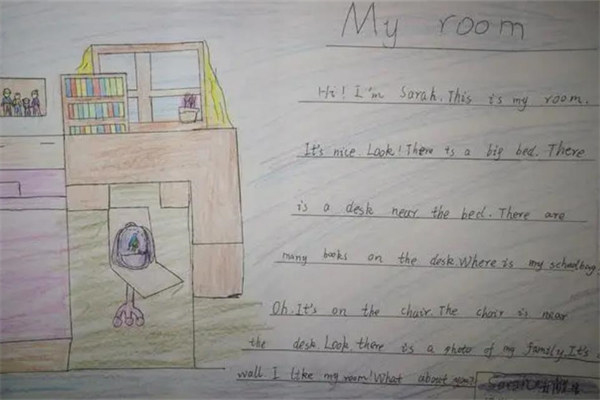 My room
Hi! I'm Sarah. This is my room.
It's nice. Look! There is a big bed. There
is a desk near the bed. There are
many books on the desk. Where is my schoolbag.
Oh. It's on the chair. The chair is near
the desk. Look there is a photo of my family. It's
wall. I like my room! What about you?
Sarah